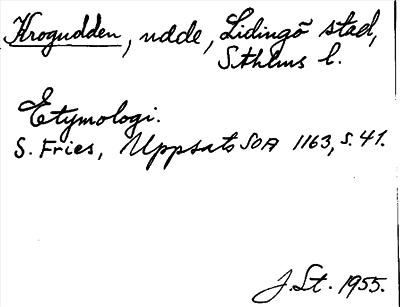 Krogudden, udde, Lidingö stad,
Sthlms l.
Etymologi.
S. Fries, Uppsats SOA 1163, s. 41.
J. St. 1955.